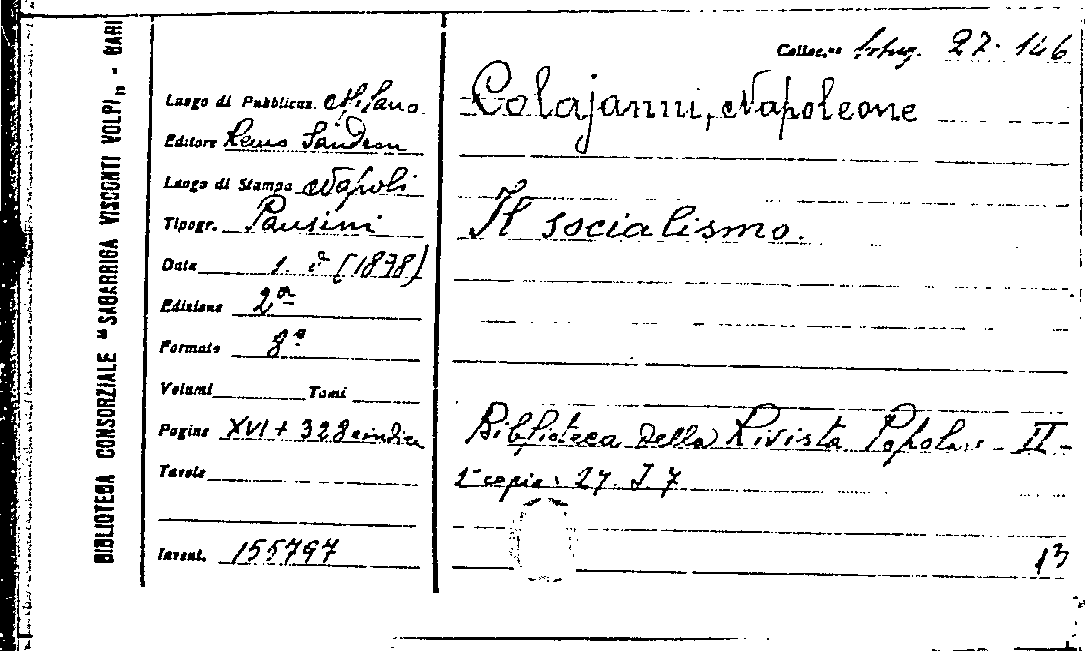 BIBLIOTECA CONSORZIALE "SAGARRIGA VISCONTI VOLPI„ - BARI
Colloc.ne 27. 146
Luogo di Pubblicaz. Milano
Colajanni, Napoleone
Editore Remo Sandron
Luogo di Stampa Napoli
Tipogr. Pansini
Il socialismo.
Data (1898)
Edizione 2a
Formato 8°
Volumi Tomi
Pagine XVI + 328 e indice
Biblioteca della Rivista Popolare - II -
Tavole
copia: 27. J 7
Invent. 155797
13